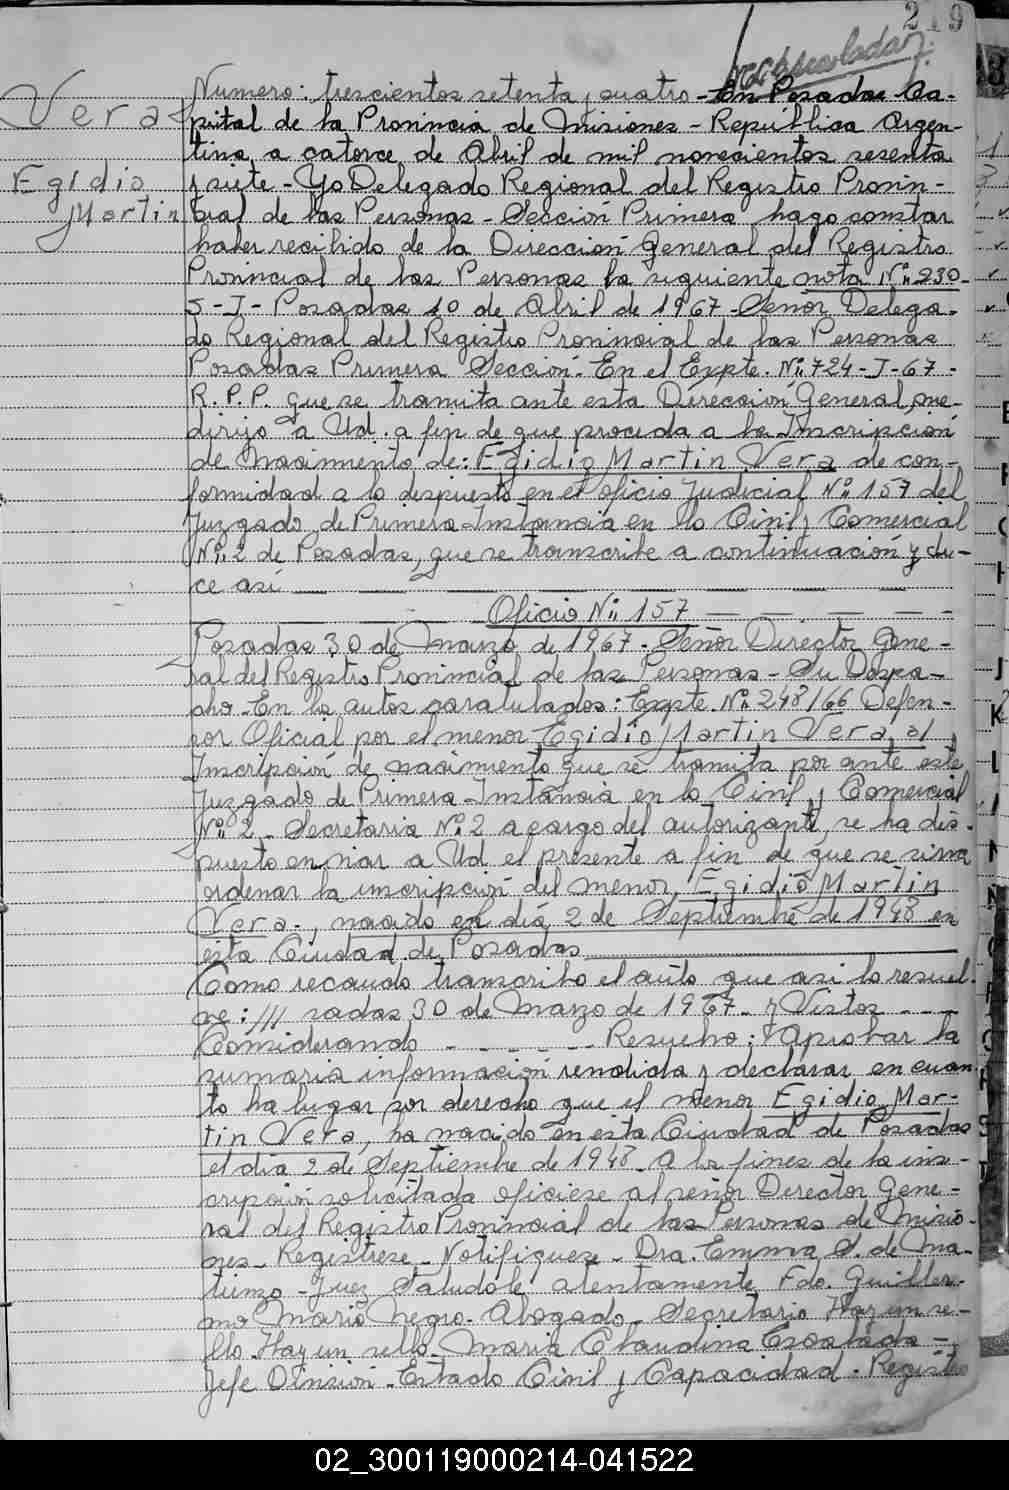 219
Vera
Egidio
Martin
Numero: trescientos setenta y cuatro - En Posadas Ca-
pital de la Provincia de Misiones - República Argen-
tina, a catorce de Abril de mil novecientos sesenta
y siete - Yo Delegado Regional del Registro Provin-
cial de las Personas - Sección Primera, hago constar
haber recibido de la Dirección General del Registro
Provincial de las Personas la siguiente nota Nº 230-
S-I- Posadas 10 de Abril de 1967 - Señor Delega-
do Regional del Registro Provincial de las Personas
Posadas Primera Sección - En el Expte. Nº 724-J-67-
R.P.P. que se tramita ante esta Dirección General, me
dirijo a Ud. a fin de que proceda a la Inscripción
de nacimiento de: Egidio Martin Vera de con-
formidad a lo dispuesto en el oficio Judicial Nº 157 del
Juzgado de Primera Instancia en lo Civil y Comercial
Nº 2 de Posadas, que se transcribe a continuación y di-
ce así
Oficio Nº 157
Posadas 30 de Marzo de 1967 - Señor Director Gene-
ral del Registro Provincial de las Personas - Su Despa-
cho - En los autos caratulados: Expte. Nº 248/66 Defen-
sor Oficial por el menor Egidio Martin Vera s/
Inscripción de nacimiento que se tramita por ante este
Juzgado de Primera Instancia en lo Civil y Comercial
Nº 2 - Secretaria Nº 2 a cargo del autorizante, se ha dis-
puesto enviar a Ud. el presente a fin de que se sirva
ordenar la inscripción del menor, Egidio Martin
Vera, nacido el día 2 de Septiembre de 1948 en
esta Ciudad de Posadas
Como recaudo transcribo el auto que asi lo resuel-
ve: /// sadas 30 de Marzo de 1967 - y Vistos ----
Considerando ------ Resuelvo: Aprobar la
sumaria información rendida y declarar en cuan-
to ha lugar por derecho que el menor Egidio Mar-
tin Vera, ha nacido en esta Ciudad de Posadas
el día 2 de Septiembre de 1948 - A los fines de la ins-
cripción solicitada ofíciese al señor Director Gene-
ral del Registro Provincial de las Personas de Misio-
nes - Registrese - Notifiquese - Dra. Emma S. de Ma-
- Juez Saludole atentamente Fdo. Guiller-
mo Mario Negro - Abogado - Secretario Hay un se-
llo - Hay un sello - Maria Claudina Escalada -
Jefe Division - Estado Civil y Capacidad - Registro
02_300119000214-041522